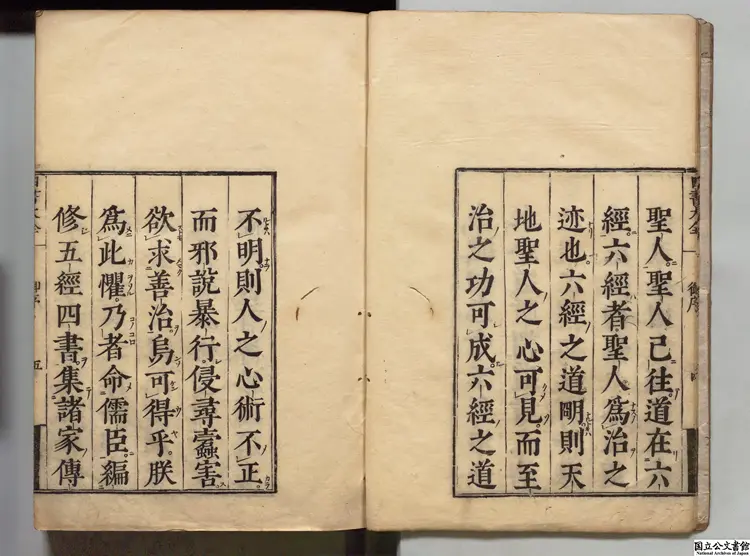 聖人聖人已往道在六
經六經者聖人為治之
迹也六經之道明則天
地聖人之心可見而至
治之功可成六經之道
不明則人之心術不正
而邪說暴行侵尋蠹害
欲求善治烏可得乎朕
為此懼乃者命儒臣編
修五經四書集諸家傳
五
国立公文書館
National Archives of Japan